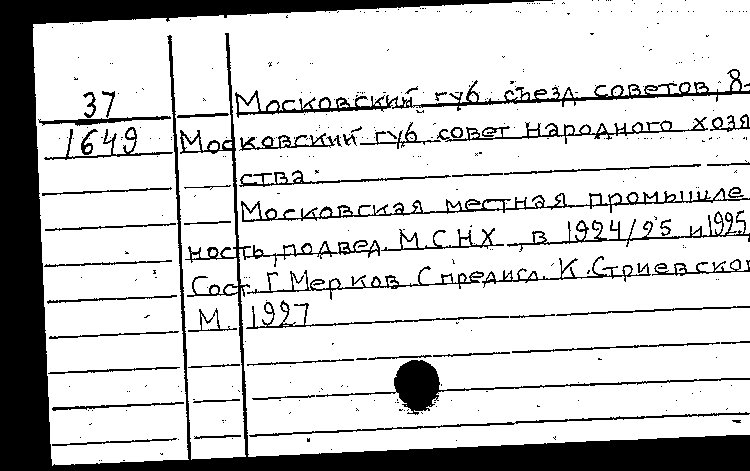 37 Московский губ. съезд советов, 8-
1649 Московский губ. совет народного хозя
ства.
Московская местная промышле
ность, подвед. М.С.Н.Х., в 1924/25 и 1925
Сост. Г. Мерков. С предисл. К. Стриевског
М. 1927